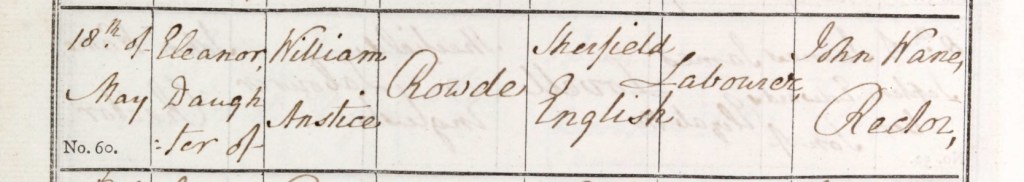 18th. of
May
No. 60.
Eleanor,
Daugh
:ter of
William
Anstice
Rowde
Sherfield
English
Labourer,
John Wane,
Rector,